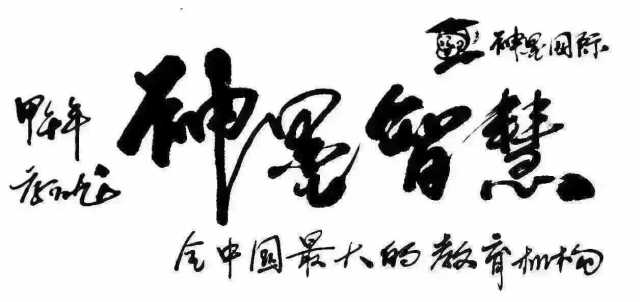 神墨国际
神墨智慧
甲午年
全中国最大的教育机构